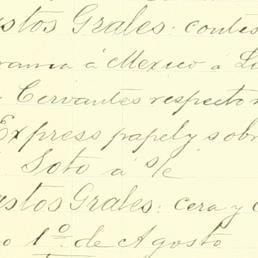 stos Grales: contes
grama á Mexico á Lu
Cervantes respecto
Express papel y sobr
Soto á s/c
astos Grales: cera y
o 1º. de Agosto